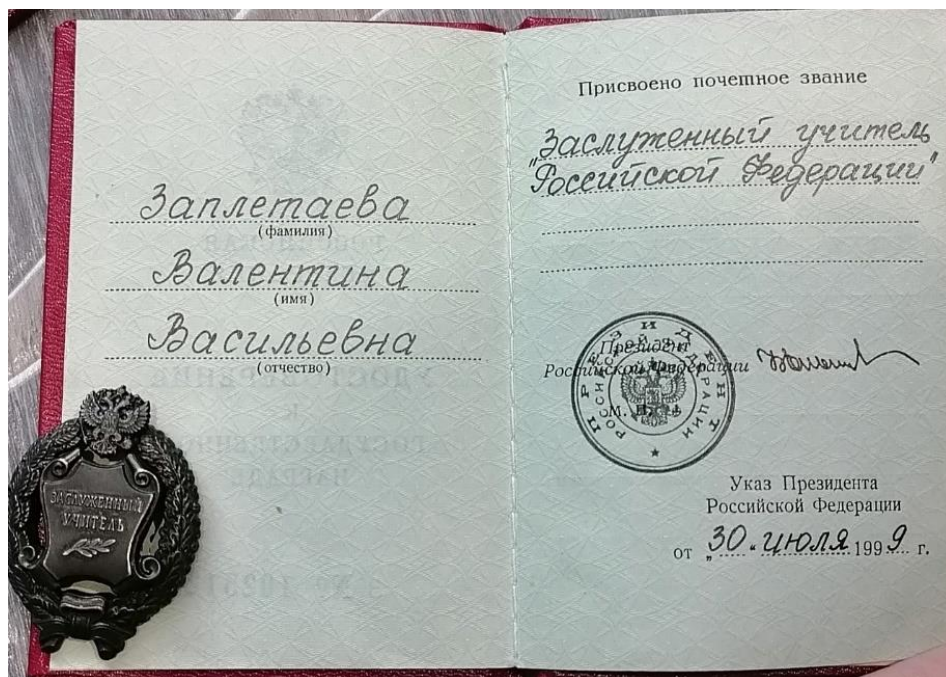 Заплетаева
(фамилия)
Валентина
(имя)
Васильевна
(отчество)
ЗАСЛУЖЕННЫЙ
УЧИТЕЛЬ
Присвоено почетное звание
"Заслуженный учитель
Российской Федерации"
Президент
Российской Федерации
М. П.
ПРЕЗИДЕНТ
РОССИЙСКОЙ ФЕДЕРАЦИИ
Указ Президента
Российской Федерации
от „30“ июля 1999 г.